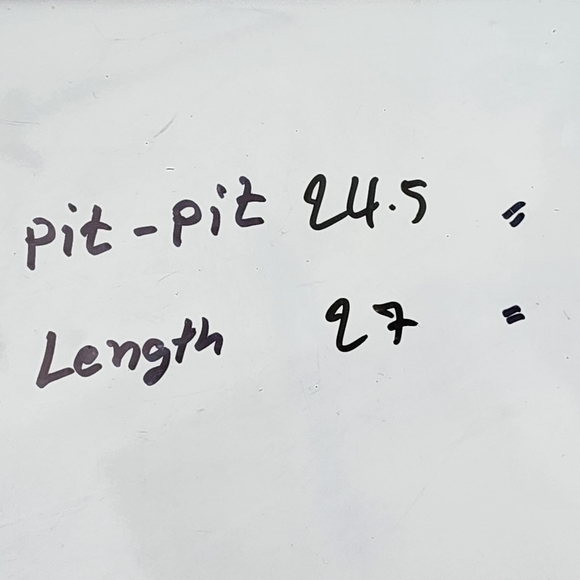 pit-pit 24.5 "
Length 27 "